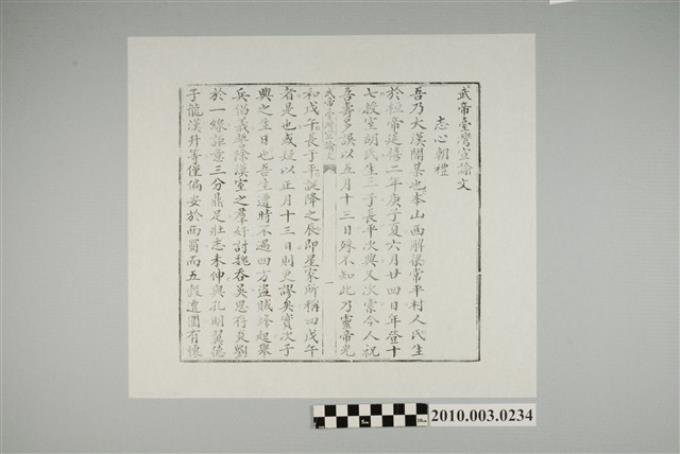 武帝臺灣宣諭文
志心朝禮
吾乃大漢關某也本山西解梁常平村人氏生
於桓帝延禧二年庚子夏六月廿四日年登十
七授室胡氏生三子長平次興又次索今人祝
吾壽多誤以五月十三日殊不知此乃靈帝光
和戊午長子平誕降之辰即星家所稱四戊午
者是也或疑以正月十三日則更謬矣實次子
興之生日也吾生遭時不遇四方盜賊蜂起舉
兵倡義誓除漢室之羣奸討魏吞吳思存炎劉
於一線詎意三分鼎足壯志未伸與孔明翼德
子龍漢升等僅偏安於西蜀而五殺遺圖有懷
武帝臺灣宣諭文
一
2010.003.0234